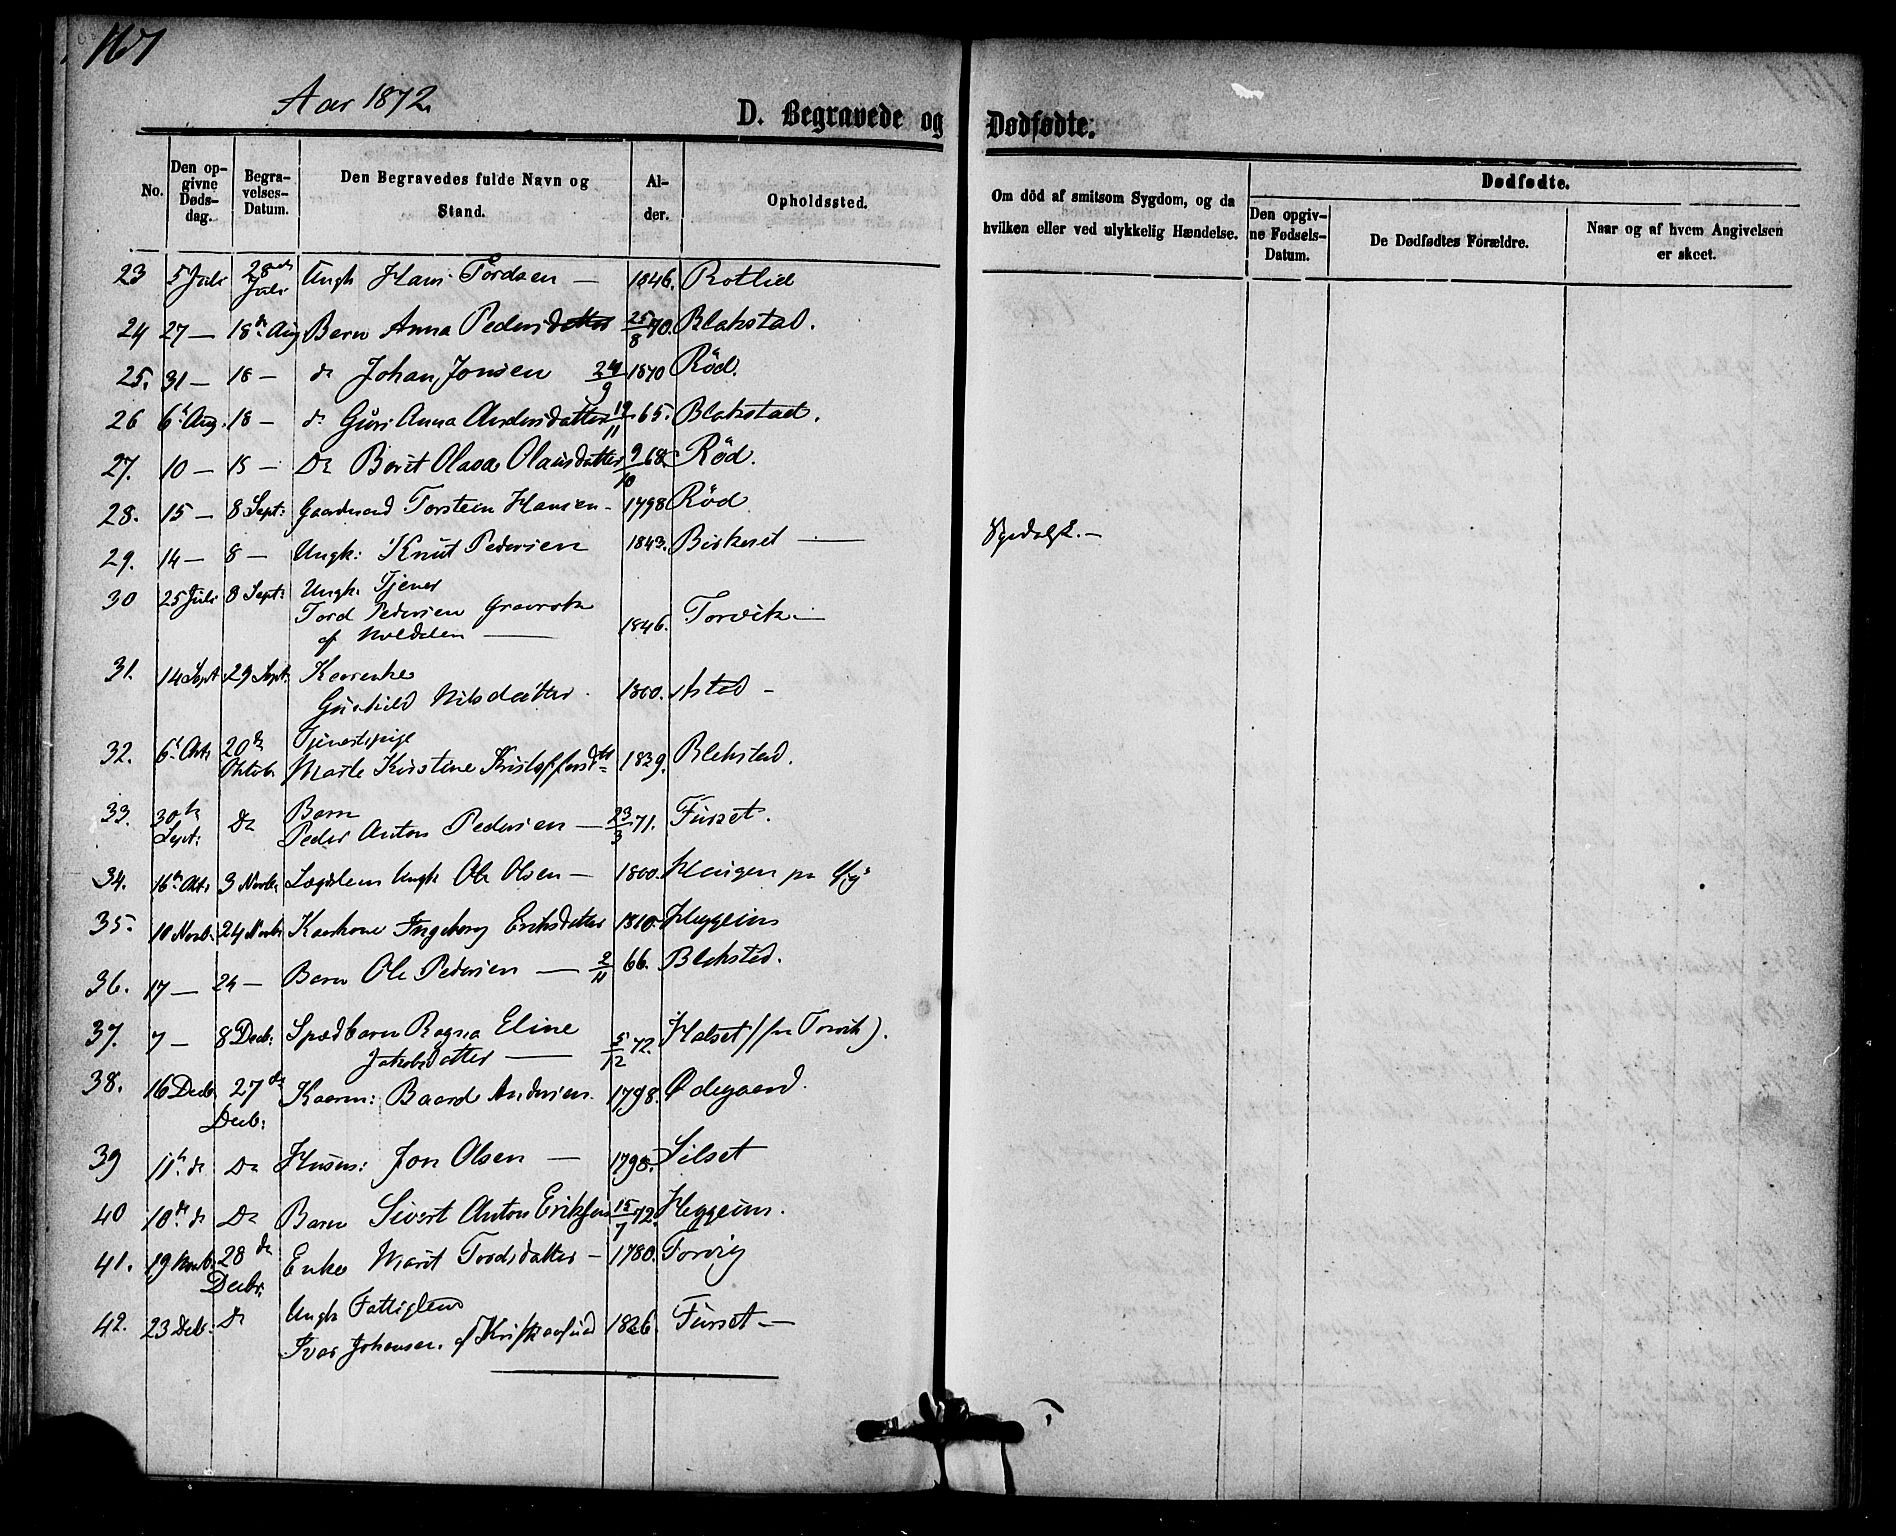 167
Aar 1872.
D. Begravede og Dødfødte.
No. Den opgivne Dødsdag. Begravelses-Datum. Den Begravedes fulde Navn og Stand. Alder. Opholdssted. Om död af smitsom Sygdom, og da hvilken eller ved ulykkelig Hændelse. Dødfødte. Den opgivne Fødsels-Datum. De Dødfødtes Forældre. Naar og af hvem Angivelsen er skeet.
23 5 Juli 28 Juli Ungk Hans Tordsen — 1846. Rotlid
24 27 — 18de Aug Barn Anna Pedersdatter 25/8 70. Blakstad.
25. 31 — 18 — do Johan Jonsen 24/9 1870 Röd.
26 6t Aug. 18 — do Guri Anna Andersdatter 19/11 65. Blakstad.
27. 10 — 18 — Do Berit Olava Olausdatter 9/10 68. Röd.
28. 15 — 8 Sept: Gaardmand Torsteen Hansen - 1798 Röd
29. 14 — 8 — Ungk: Knut Pedersen 1843. Birkeset —
30 25 Juli 8 Sept: Ungk. Tjener
Tord Pedersen
af — 1846. Torvik —
31. 14 Sept 29 Sept: Kaarenke
Gunhild Nilsdatter. 1800. Astad -
32. 6t Okt: 20de Oktob. Tjenestepige
Marte Kirstine Kristoffersdtt 1839. Blekstad.
33. 30te Sept: Do Barn
Peder Anton Pedersen — 23/3 71. Furset.
34. 16de Okt: 3 Novb. Lægdslem Ungk Ole Olsen — 1800. Haugen
35. 10 Novb. 24 Novb. Kaarkone Ingeborg Eriksdatter 1810. Heggeim
36. 17 — 24 — Barn Ole Pedersen — 2/11 66. Blekstad.
37. 7 — 8 Decb: Spædbarn Ragna Eline
Jakobsdatter — 5/12 72. Halset (fra Torvik).
38. 16 Decb. 27de Decb: Kaarm: Baard Andersen. 1798. Ødegaard.
39 11te do Do Husm: Jon Olsen — 1798. Silset
40 10de do Do Barn Sivert Anton Eriksen 15/7 72. Heggeim.
41. 19 Novb. 28de Decbr: Enke Marit Tordsdatter — 1780. Torvig
42. 23 Decb. do Ungk Fattiglem
Ivar Johansen. af Kristiansund 1826. Furset —